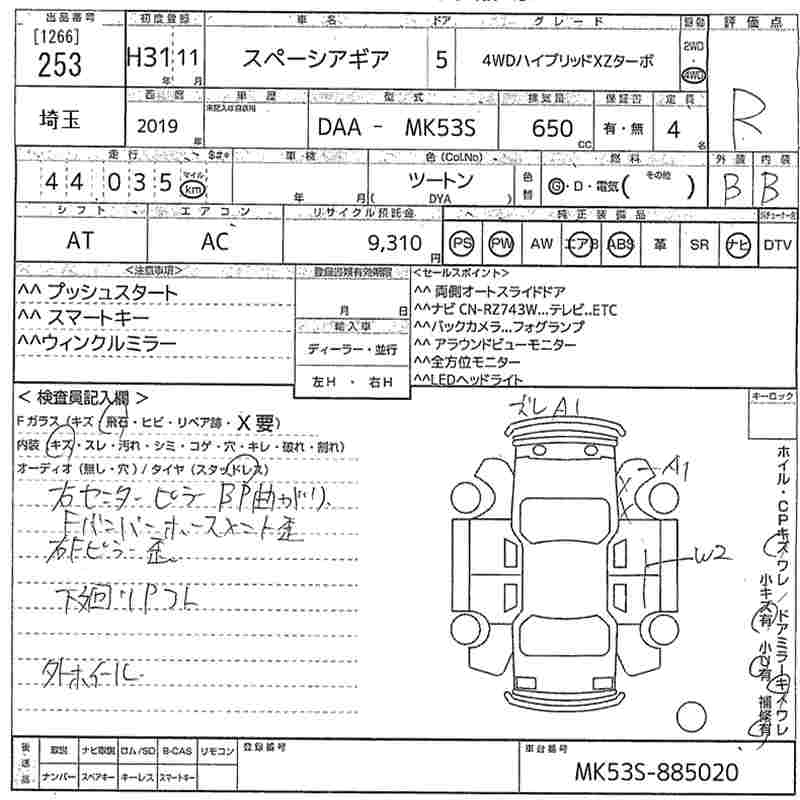 出品番号 初度登録 車 名 ドア グレード 駆動 評価点
[1266]
253 H31年 11月 スペーシアギア 5 4WDハイブリッドXZターボ 2WD・4WD R
西暦 車歴 型式 排気量 保証書 定員
埼玉 2019年 未記入は自家用 DAA - MK53S 650cc 有・無 4名
走行 $#* 車検 色(Col.No) 燃料 外装 内装
44,035 マイル km 年 月 ツートン (DYA) 色替 G・D・電気( その他 ) B B
シフト エアコン リサイクル預託金 純正装備品
AT AC 9,310円 PS PW AW エアB ABS 革 SR ナビ DTV
<注意事項> 登録書類有効期限 <セールスポイント>
^^ プッシュスタート
^^ スマートキー
^^ウィンクルミラー
月 日
輸入車
ディーラー・並行
左H ・ 右H
^^ 両側オートスライドドア
^^ナビ CN-RZ743W...テレビ..ETC
^^バックカメラ...フォグランプ
^^ アラウンドビューモニター
^^全方位モニター
^^LEDヘッドライト
< 検査員記入欄 >
Fガラス(キズ・飛石・ヒビ・リペア跡・X要)
内装(キズ・スレ・汚れ・シミ・コゲ・穴・キレ・破れ・割れ)
オーディオ(無し・穴)/タイヤ(スタッドレス)
右センターピラーBP曲がり、
Fバンパーホースメント歪
右Fピラー歪。
下廻り
外ホイール.
ズレA1
A1
W2
キーロック
ホイル・CPキズワレ/ドアミラーキズワレ
小キズ有 小凹有 補修有
後送品 取説 ナビ取説 ロム/SD B-CAS リモコン 登録番号 車台番号
ナンバー スペアキー キーレス スマートキー MK53S-885020